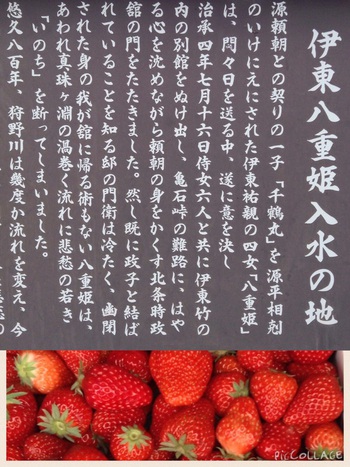 伊東八重姫入水の地
源頼朝との契りの一子「千鶴丸」を源平相剋
のいけにえにされた伊東祐親の四女「八重姫」
は、悶々日を送る中、遂に意を決し
治承四年七月十六日侍女六人と共に伊東竹の
内の別館をぬけ出し、亀石峠の難路に、はや
る心を沈めながら頼朝の身をかくす北条時政
舘の門をたたきました。然し既に政子と結ば
れていることを知る邸の門衛は冷たく、幽閉
された身の我が舘に帰る術もない八重姫は、
あわれ真珠ヶ淵の渦巻く流れに悲愁の若き
「いのち」を断ってしまいました。
悠久八百年、狩野川は幾度か流れを変え、今
PIC COLLAGE